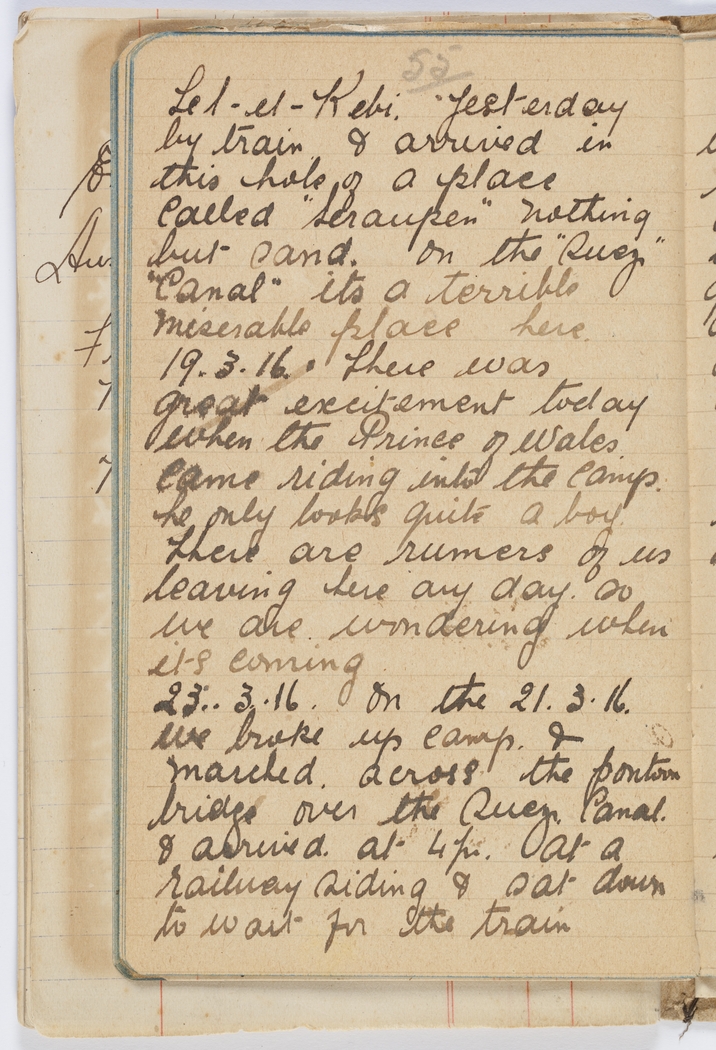 55
Lel-el-Kebi. Yesterday
by train & arrived in
this hole of a place
called "Seraupen" nothing
but sand. On the "Suez"
"Canal" its a terrible
miserable place here.
19.3.16. There was
great excitement today
when the Prince of Wales
came riding into the camp.
he only looks quite a boy.
There are rumers of us
leaving here any day. so
we are wondering when
its coming
23.3.16. On the 21.3.16.
we broke up camp. &
marched. across the pontoon
bridge over the Suez Canal.
& arrived. at 4p. at a
railway siding & sat down
to wait for the train